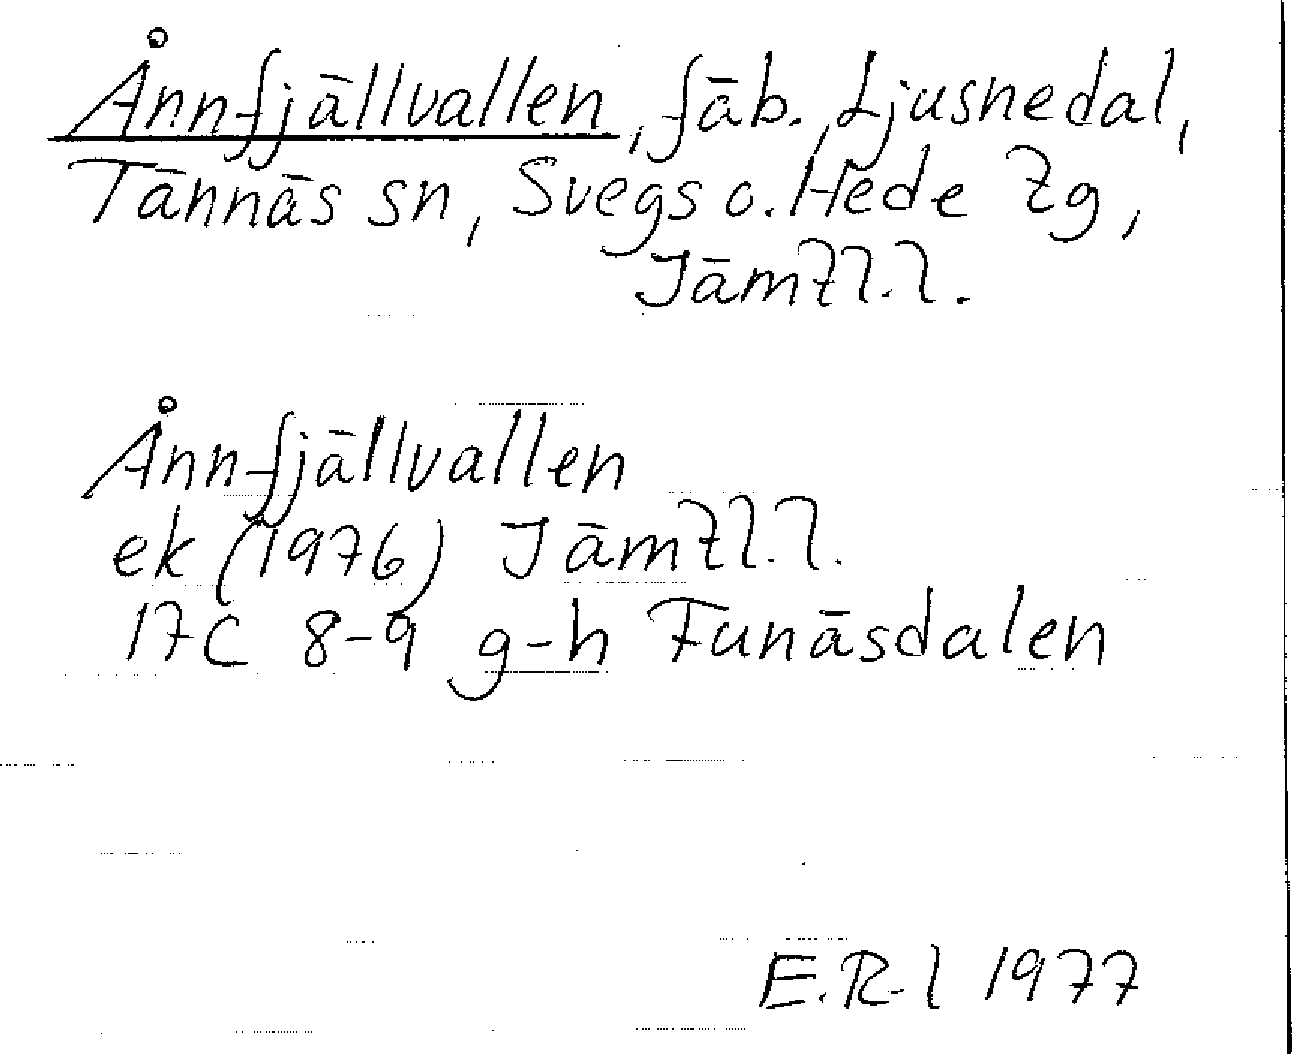 Ånnfjällvallen, fäb. Ljusnedal,
Tännäs sn, Svegs o. Hede tg,
Jämtl.l.
Ånnfjällvallen
ek (1976) Jämtl.l.
17C 8-9 g-h Funäsdalen
E.R-l 1977